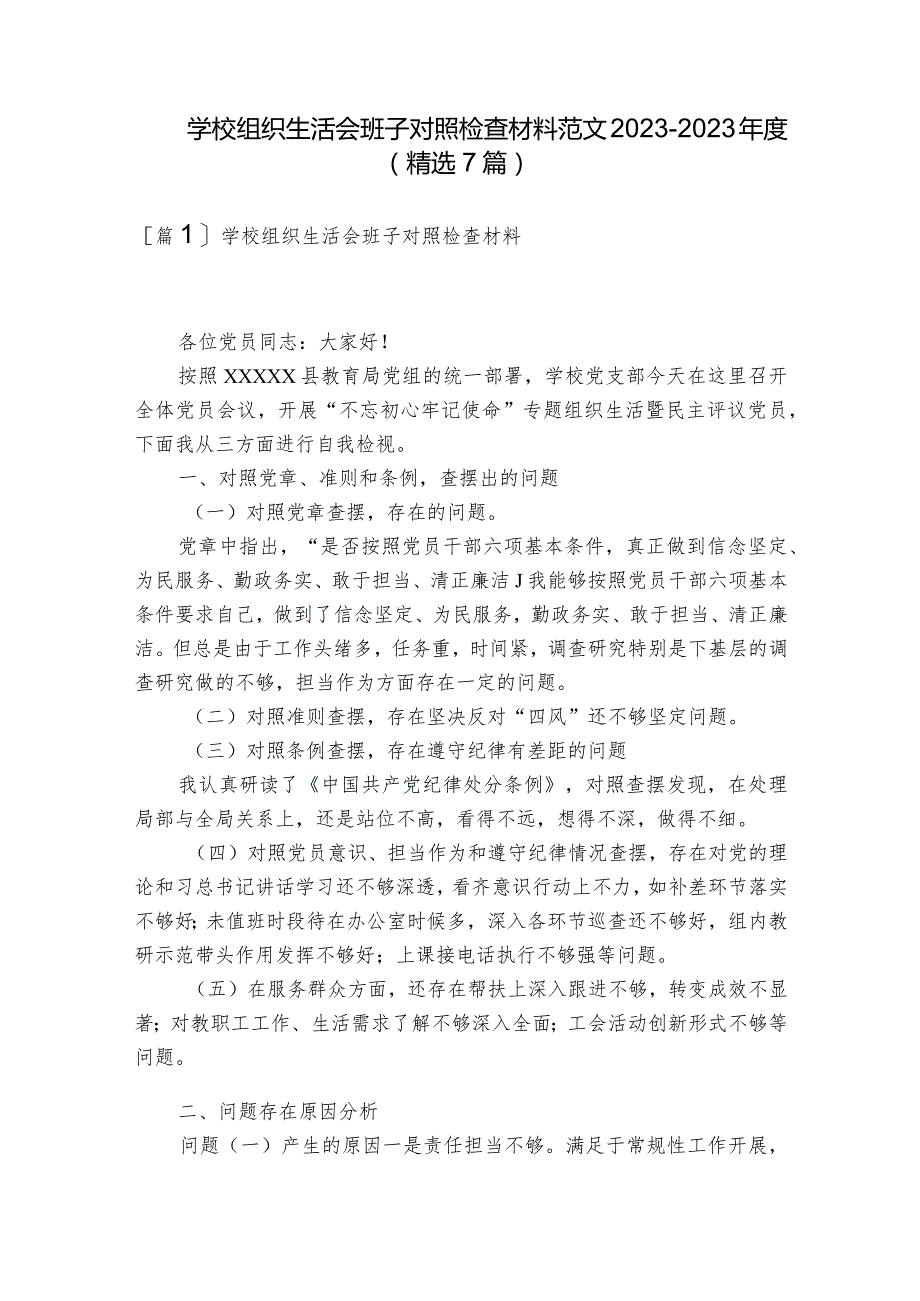 学校组织生活会班子对照检查材料范文2023-2023年度
（精选7篇）
［篇1］学校组织生活会班子对照检查材料
各位党员同志：大家好！
按照XXXXX县教育局党组的统一部署，学校党支部今天在这里召开
全体党员会议，开展“不忘初心牢记使命”专题组织生活暨民主评议党员，
下面我从三方面进行自我检视。
一、对照党章、准则和条例，查摆出的问题
（一）对照党章查摆，存在的问题。
党章中指出，“是否按照党员干部六项基本条件，真正做到信念坚定、
为民服务、勤政务实、敢于担当、清正廉洁J我能够按照党员干部六项基本
条件要求自己，做到了信念坚定、为民服务，勤政务实、敢于担当、清正廉
洁。但总是由于工作头绪多，任务重，时间紧，调查研究特别是下基层的调
查研究做的不够，担当作为方面存在一定的问题。
（二）对照准则查摆，存在坚决反对“四风”还不够坚定问题。
（三）对照条例查摆，存在遵守纪律有差距的问题
我认真研读了《中国共产党纪律处分条例》，对照查摆发现，在处理
局部与全局关系上，还是站位不高，看得不远，想得不深，做得不细。
（四）对照党员意识、担当作为和遵守纪律情况查摆，存在对党的理
论和习总书记讲话学习还不够深透，看齐意识行动上不力，如补差环节落实
不够好；未值班时段待在办公室时候多，深入各环节巡查还不够好，组内教
研示范带头作用发挥不够好；上课接电话执行不够强等问题。
（五）在服务群众方面，还存在帮扶上深入跟进不够，转变成效不显
著；对教职工工作、生活需求了解不够深入全面；工会活动创新形式不够等
问题。
二、问题存在原因分析
问题（一）产生的原因一是责任担当不够。满足于常规性工作开展，